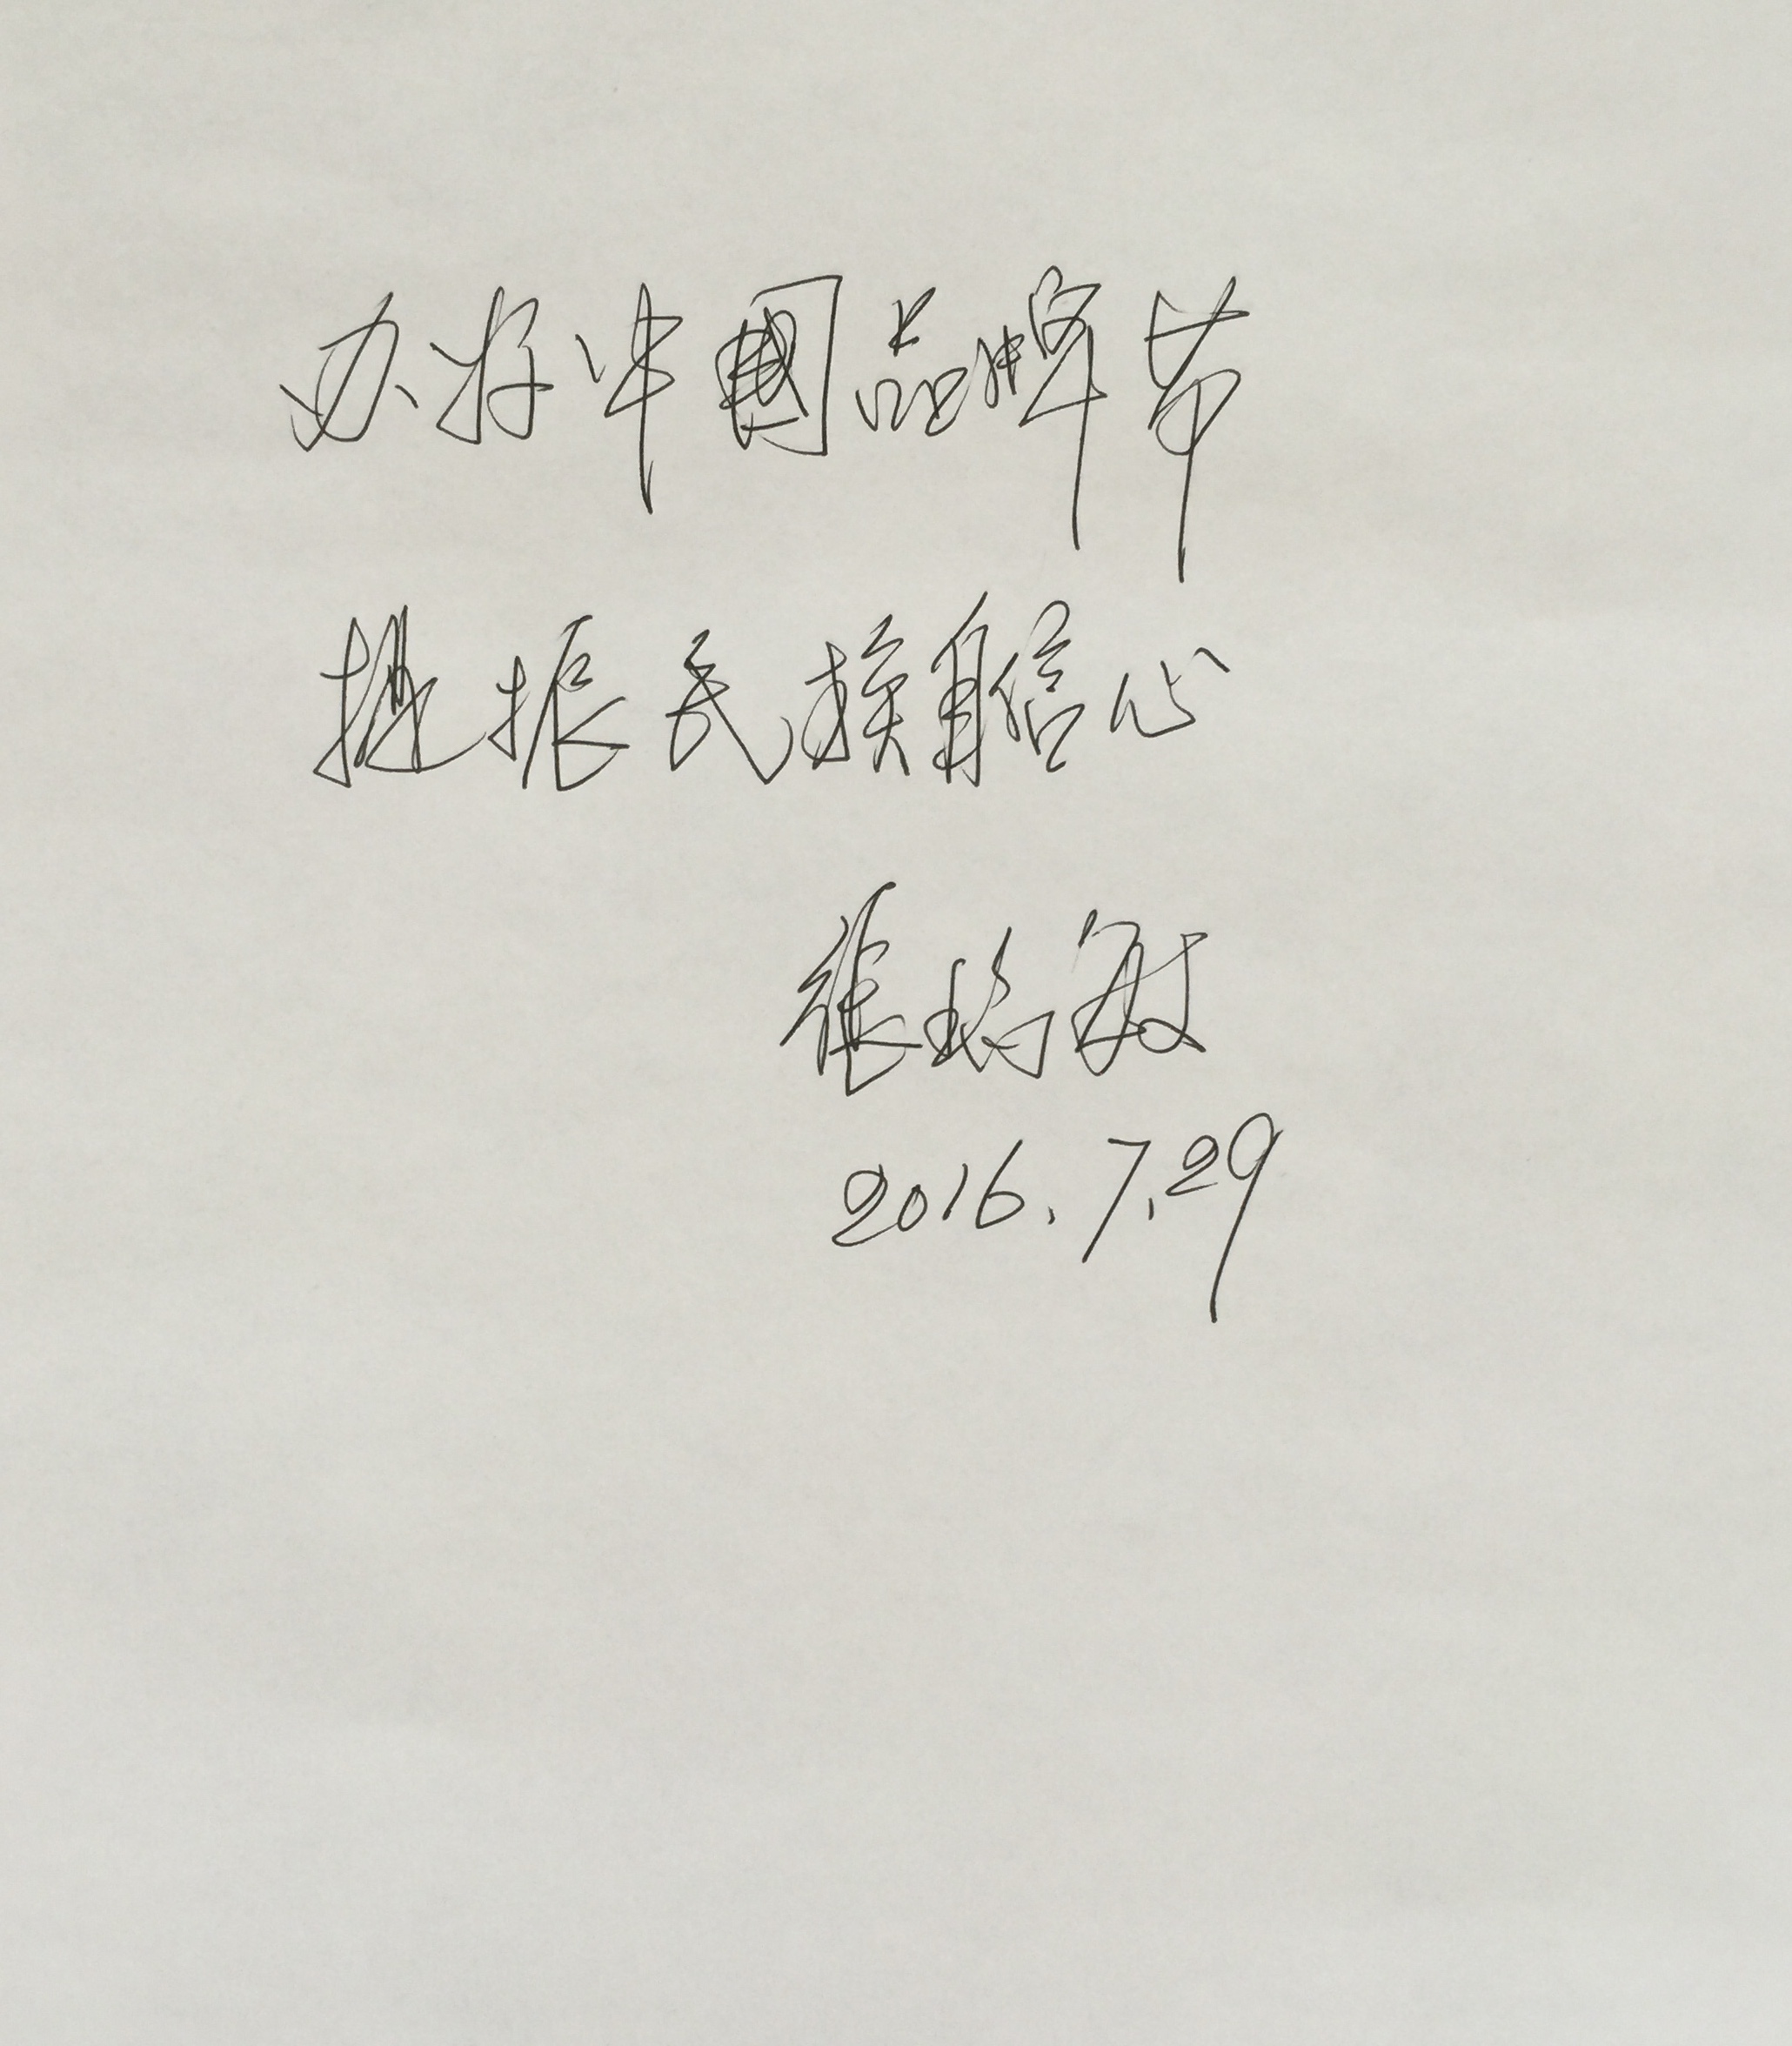 办好中国品牌节
提振民族自信心
张瑞敏
2016.7.29